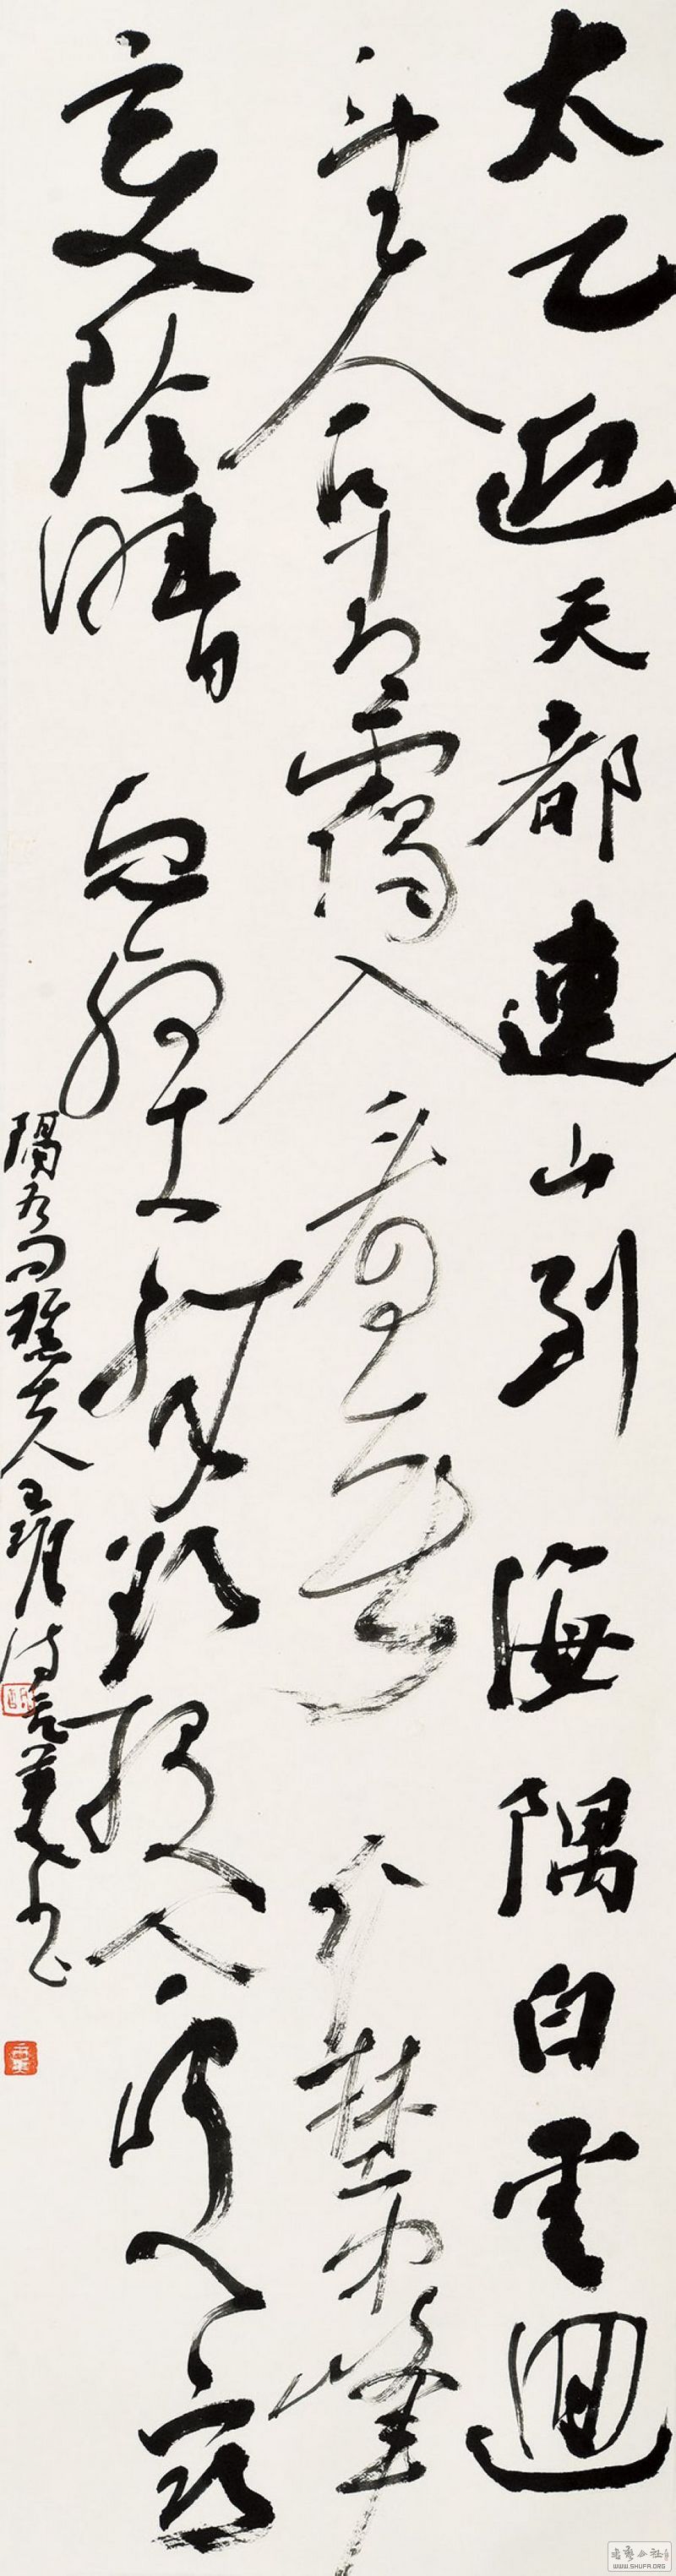 太乙近天都連山到海隅白雲迴
望合青靄入看無分埜中峰
變陰晴眾壑殊欲投人處宿
隔水問樵夫王維詩
WWW.SHUFA.ORG